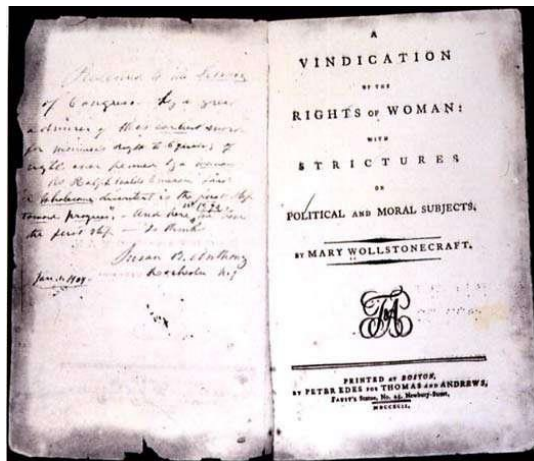 Presented to the Library
of Congress by a great
admirer of this earliest work
for woman's right to Equality of
right ever penned by a woman
As Ralph Waldo Emerson said
"A wholesome discontent is the first step
toward progress." And here, in
the first step — So thinks
Susan B. Anthony
Rochester N.Y.
Jan. 1. 1904
A
VINDICATION
OF THE
RIGHTS OF WOMAN:
WITH
STRICTURES
ON
POLITICAL AND MORAL SUBJECTS.
BY MARY WOLLSTONECRAFT.
PRINTED AT BOSTON,
BY PETER EDES FOR THOMAS AND ANDREWS,
FAUST'S Statue, No. 45, Newbury-Street,
MDCCXCII.